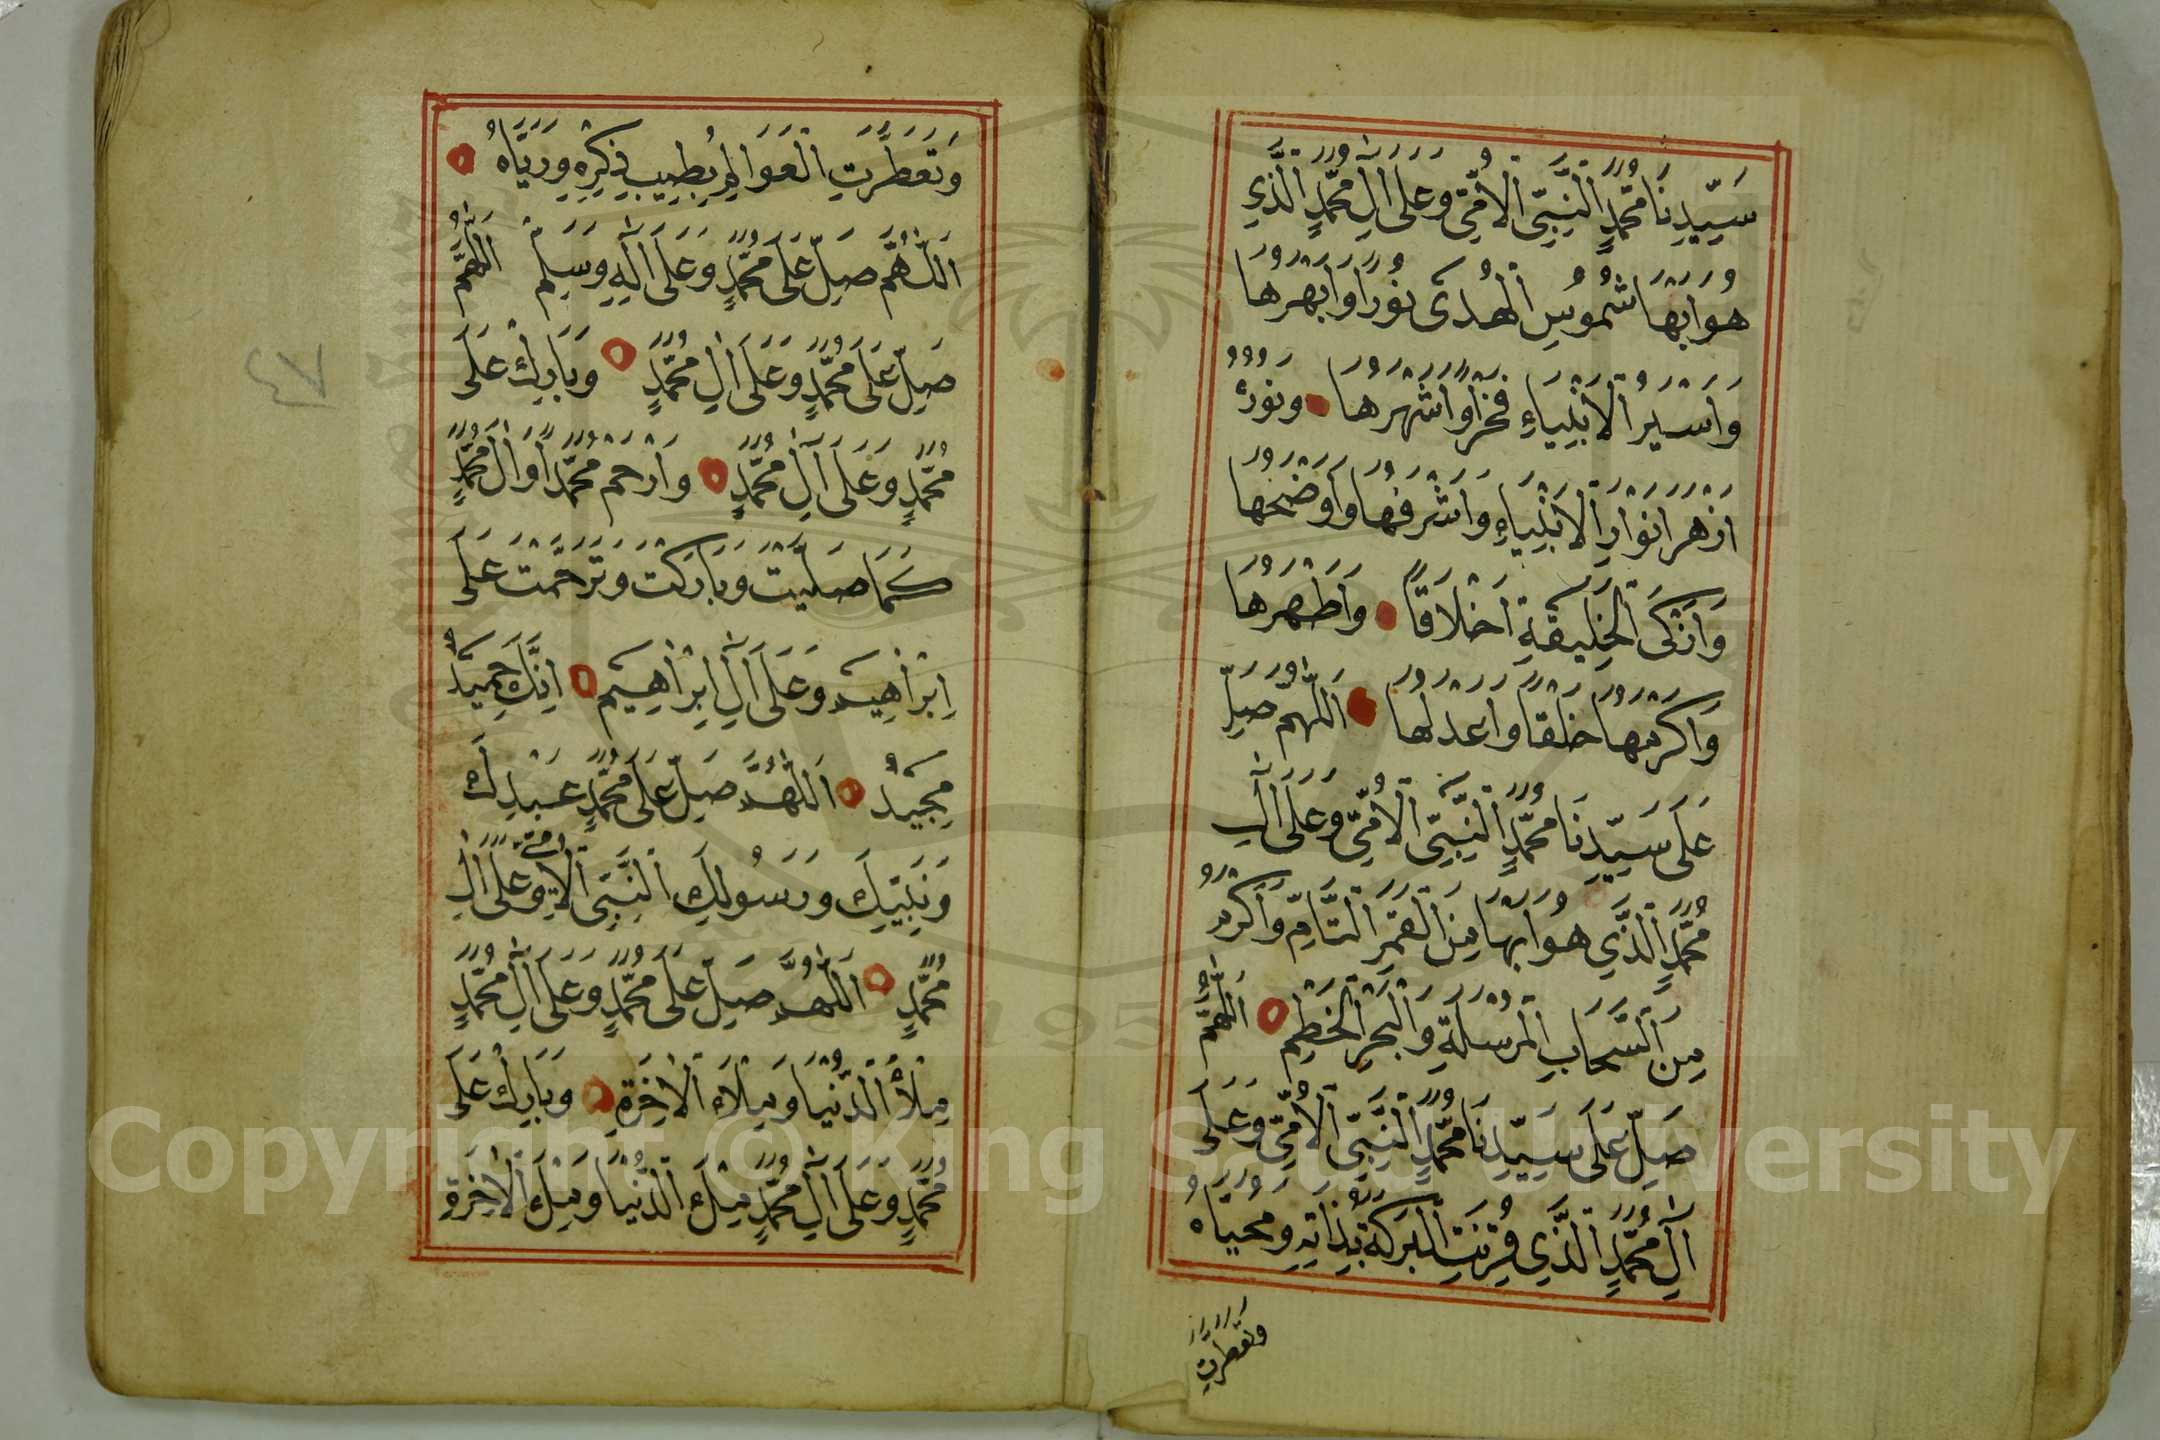 سَيِّدِنَا مُحَمَّدٍ النَّبِيِّ الْأُمِّيِّ وَعَلَى اٰلِ مُحَمَّدٍ الَّذِي
هُوَ اَبْهَا شُمُوسِ الْهُدَى نُورًا وَاَبْهَرُهَا
وَاَسْيَرُ الْاَنْبِيَاءِ فَخْرًا وَاَشْهَرُهَا وَنُورُهُ
اَزْهَرُ اَنْوَارِ الْاَنْبِيَاءِ وَاَشْرَفُهَا وَاَوْضَحُهَا
وَاَزْكَى الْخَلِيقَةِ اَخْلَاقًا وَاَطْهَرُهَا
وَاَكْرَمُهَا خَلْقًا وَاَعْدَلُهَا اَللّٰهُمَّ صَلِّ
عَلَى سَيِّدِنَا مُحَمَّدٍ النَّبِيِّ الْأُمِّيِّ وَعَلَى اٰلِ
مُحَمَّدٍ الَّذِي هُوَ اَبْهَا مِنَ الْقَمَرِ التَّامِّ وَاَكْرَمُ
مِنَ السَّحَابِ الْمُرْسَلَةِ وَالْبَحْرِ الْخَطِمِ اَللّٰهُمَّ
صَلِّ عَلَى سَيِّدِنَا مُحَمَّدٍ النَّبِيِّ الْأُمِّيِّ وَعَلَى
اٰلِ مُحَمَّدٍ الَّذِي قُرِنَتِ الْبَرَكَةُ بِذَاتِهِ وَمُحَيَّاهُ
وَتَعَطَّرَتِ
وَتَعَطَّرَتِ الْعَوَالِمُ بِطِيبِ ذِكْرِهِ وَرَيَّاهُ
اَللّٰهُمَّ صَلِّ عَلَى مُحَمَّدٍ وَعَلَى اٰلِهِ وَسَلِّمْ اَللّٰهُمَّ
صَلِّ عَلَى مُحَمَّدٍ وَعَلَى اٰلِ مُحَمَّدٍ وَبَارِكْ عَلَى
مُحَمَّدٍ وَعَلَى اٰلِ مُحَمَّدٍ وَارْحَمْ مُحَمَّدًا وَاٰلَ مُحَمَّدٍ
كَمَا صَلَّيْتَ وَبَارَكْتَ وَتَرَحَّمْتَ عَلَى
اِبْرَاهِيمَ وَعَلَى اٰلِ اِبْرَاهِيمَ اِنَّكَ حَمِيدٌ
مَجِيدٌ اَللّٰهُمَّ صَلِّ عَلَى مُحَمَّدٍ عَبْدِكَ
وَنَبِيِّكَ وَرَسُولِكَ النَّبِيِّ الْاُمِّيِّ وَعَلَى اٰلِ
مُحَمَّدٍ اَللّٰهُمَّ صَلِّ عَلَى مُحَمَّدٍ وَعَلَى اٰلِ مُحَمَّدٍ
مِلْأَ الدُّنْيَا وَمِلْاَءَ الْاٰخِرَةِ وَبَارِكْ عَلَى
مُحَمَّدٍ وَعَلَى اٰلِ مُحَمَّدٍ مِلْءَ الدُّنْيَا وَمِلْءَ الْاٰخِرَةِ
٤٧
Copyright © King Saud University